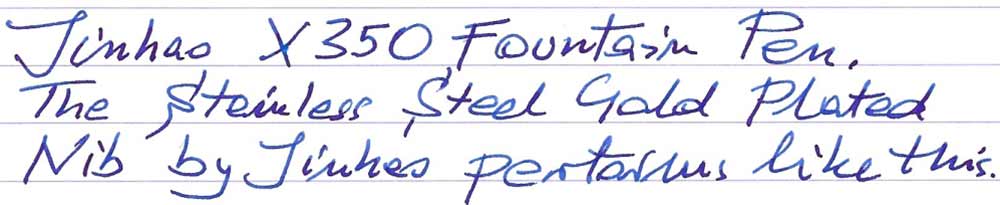 Jinhao X350 Fountain Pen.
The Stainless Steel Gold Plated
Nib by Jinhao performs like this.